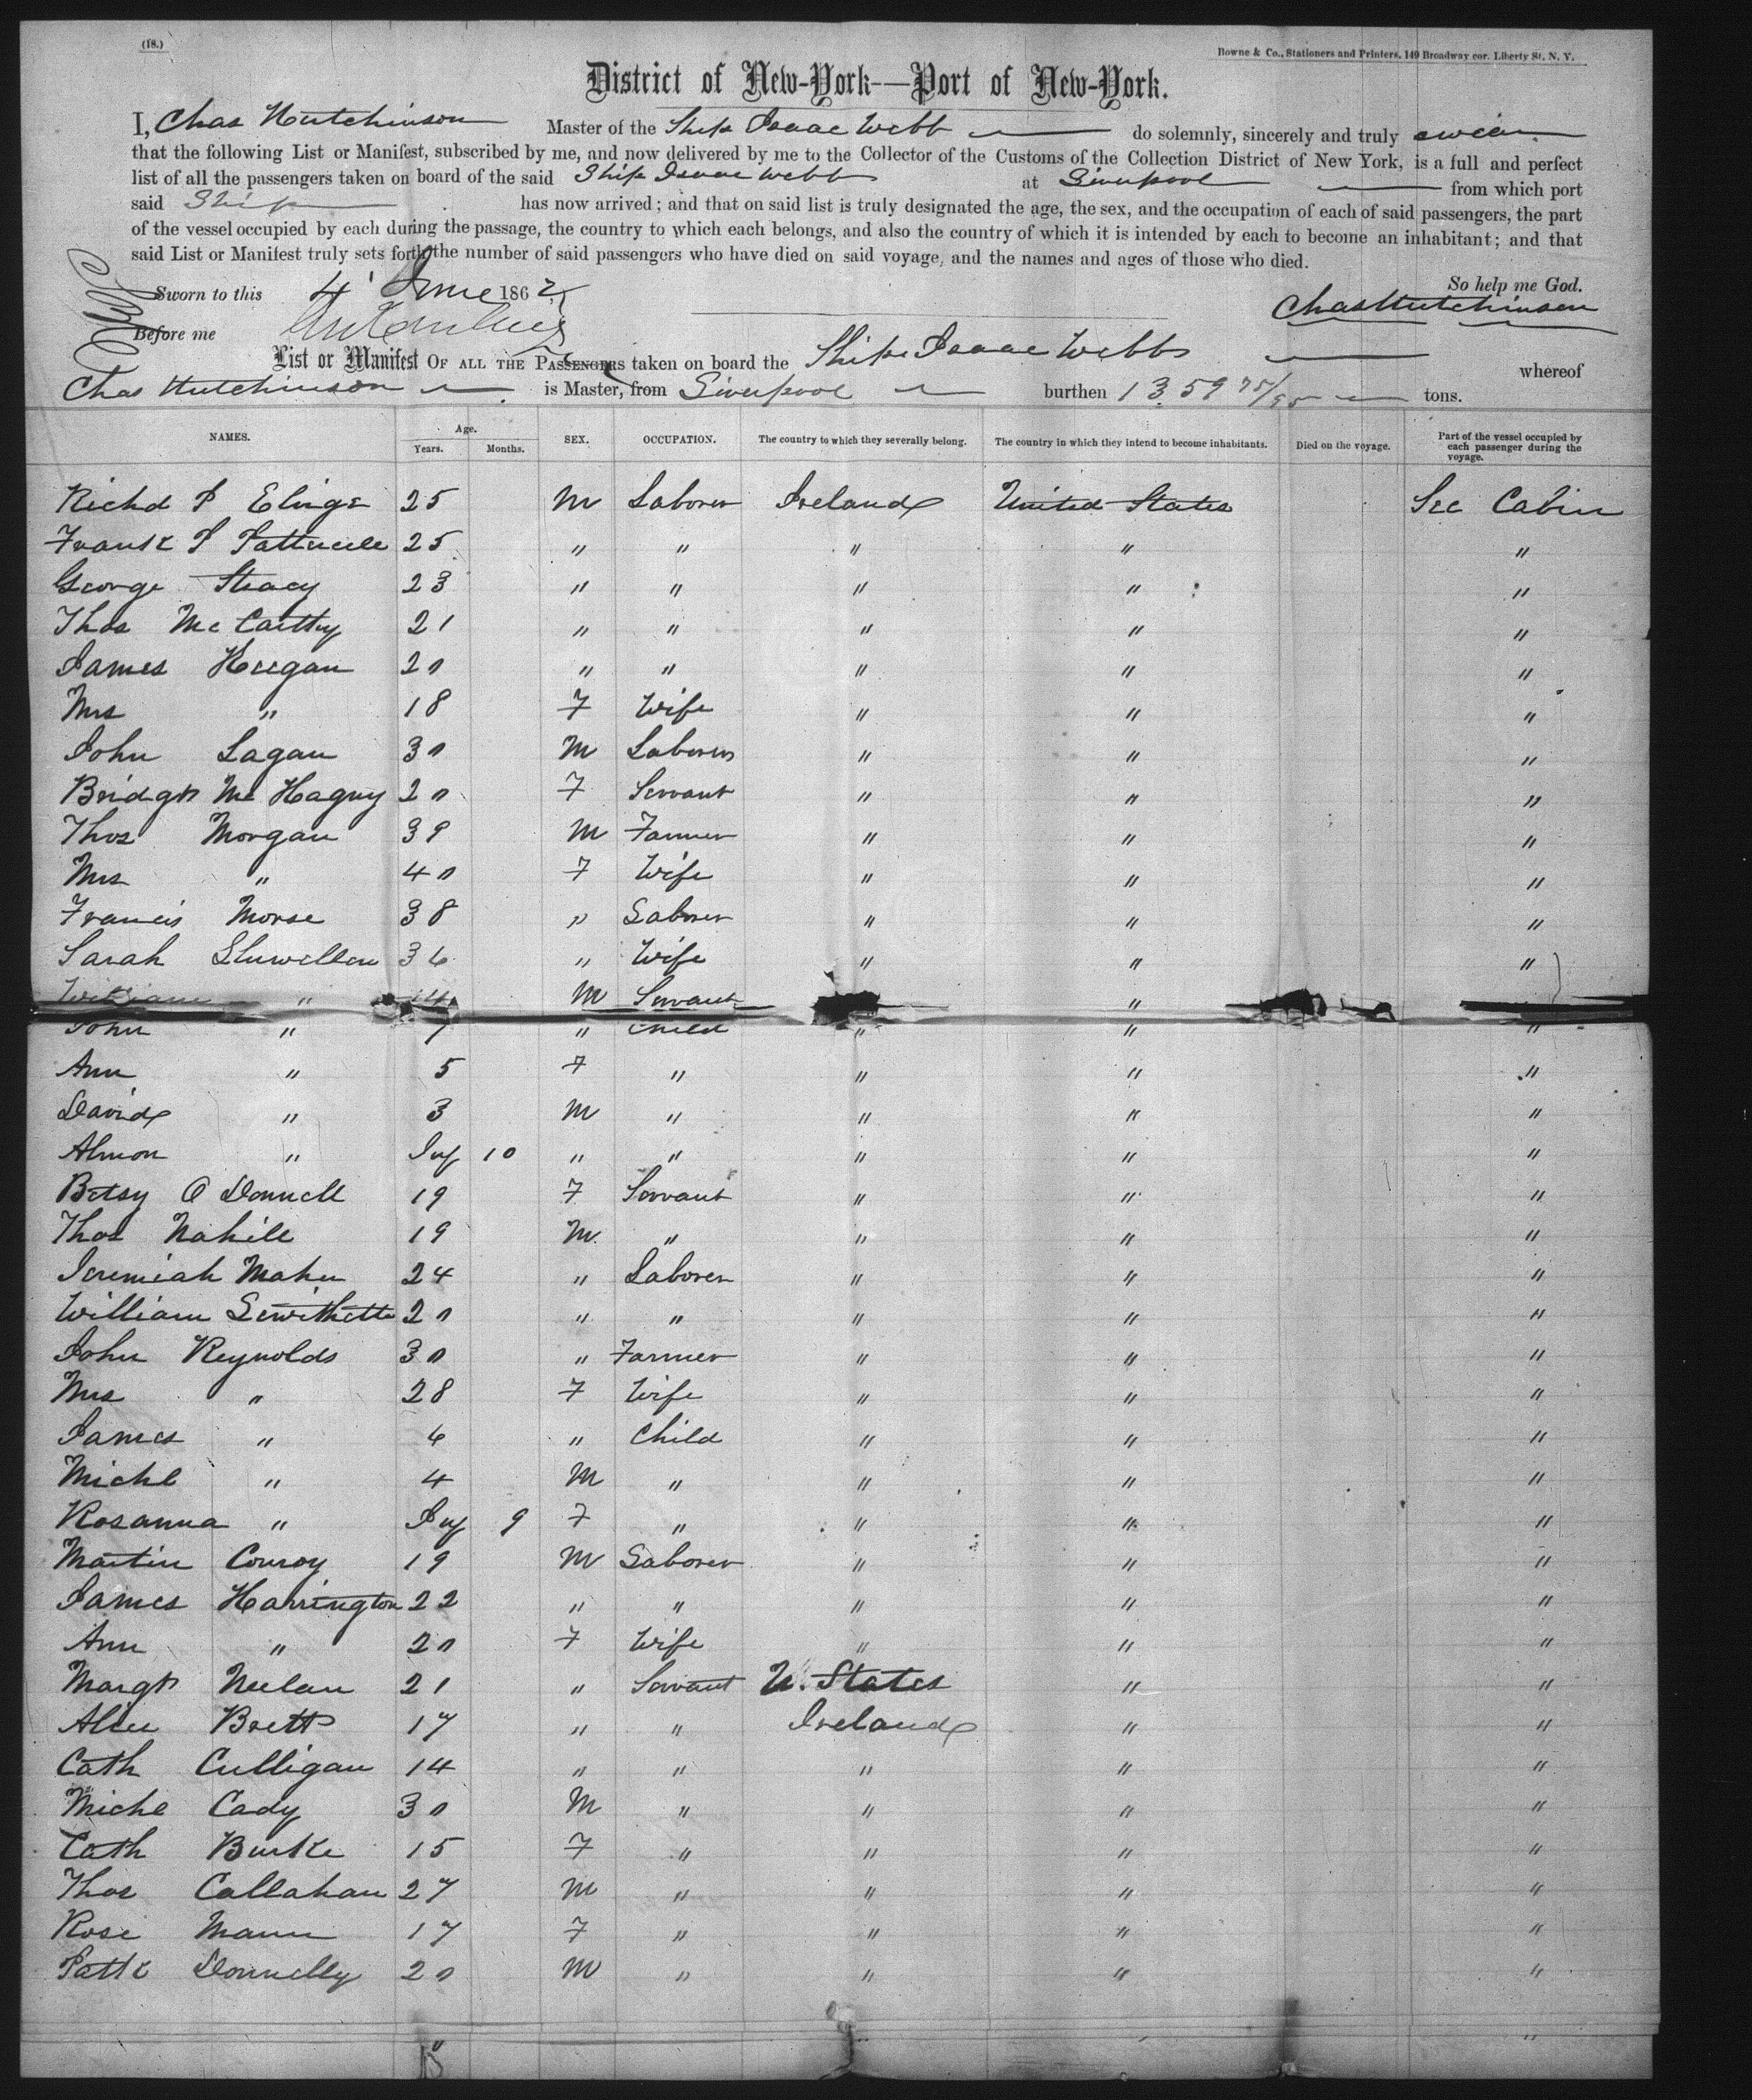 (18.)
Bowne & Co., Stationers and Printers, 149 Broadway cor. Liberty St. N. Y.
District of New-York—Port of New-York.
I, Chas Hutchinson Master of the Ship Isaac Webb do solemnly, sincerely and truly swear
that the following List or Manifest, subscribed by me, and now delivered by me to the Collector of the Customs of the Collection District of New York, is a full and perfect
list of all the passengers taken on board of the said Ship Isaac Webb at Liverpool from which port
said Ship has now arrived; and that on said list is truly designated the age, the sex, and the occupation of each of said passengers, the part
of the vessel occupied by each during the passage, the country to which each belongs, and also the country of which it is intended by each to become an inhabitant; and that
said List or Manifest truly sets forth the number of said passengers who have died on said voyage, and the names and ages of those who died.
So help me God.
Sworn to this 4 June 1862
Chas Hutchinson
Before me
List or Manifest OF ALL THE PASSENGERS taken on board the Ship Isaac Webb whereof
Chas Hutchinson is Master, from Liverpool burthen 1359 75/95 tons.
NAMES. Age. Years. Months. SEX. OCCUPATION. The country to which they severally belong. The country in which they intend to become inhabitants. Died on the voyage. Part of the vessel occupied by each passenger during the voyage.
Richd P 25 M Laborer Ireland United States Sec Cabin
Frank P 25 " " " " "
George Stacy 23 " " " " "
Thos McCarthy 21 " " " " "
James Keegan 20 " " " " "
Mrs " 18 F Wife " " "
John Lagan 30 M Laborer " " "
Bridgt 20 F Servant " " "
Thos Morgan 39 M Farmer " " "
Mrs " 40 F Wife " " "
Francis Morse 38 " Laborer " " "
Sarah 36 " Wife " " "
William " 14 M Servant "
John " 7 " Child " " "
Ann " 5 F " " " "
David " 3 M " " " "
Almon " Inf 10 " " " " "
Betsy O Donnell 19 F Servant " " "
Thos Nahill 19 M " " " "
Jeremiah Maher 24 " Laborer " " "
William 20 " " " " "
John Reynolds 30 " Farmer " " "
Mrs " 28 F Wife " " "
James " 6 " Child " " "
Michl " 4 M " " " "
Rosanna " Inf 9 F " " " "
Martin Conroy 19 M Laborer " " "
James Harrington 22 " " " " "
Ann " 20 F Wife " " "
Margt Neelan 21 " Servant U. States " "
Alice Brett 17 " " Ireland " "
Cath Culligan 14 " " " " "
Michl Cady 30 M " " " "
Cath Burke 15 F " " " "
Thos Callahan 27 M " " " "
Rose Mann 17 F " " " "
Patk Donnelly 20 M " " " "